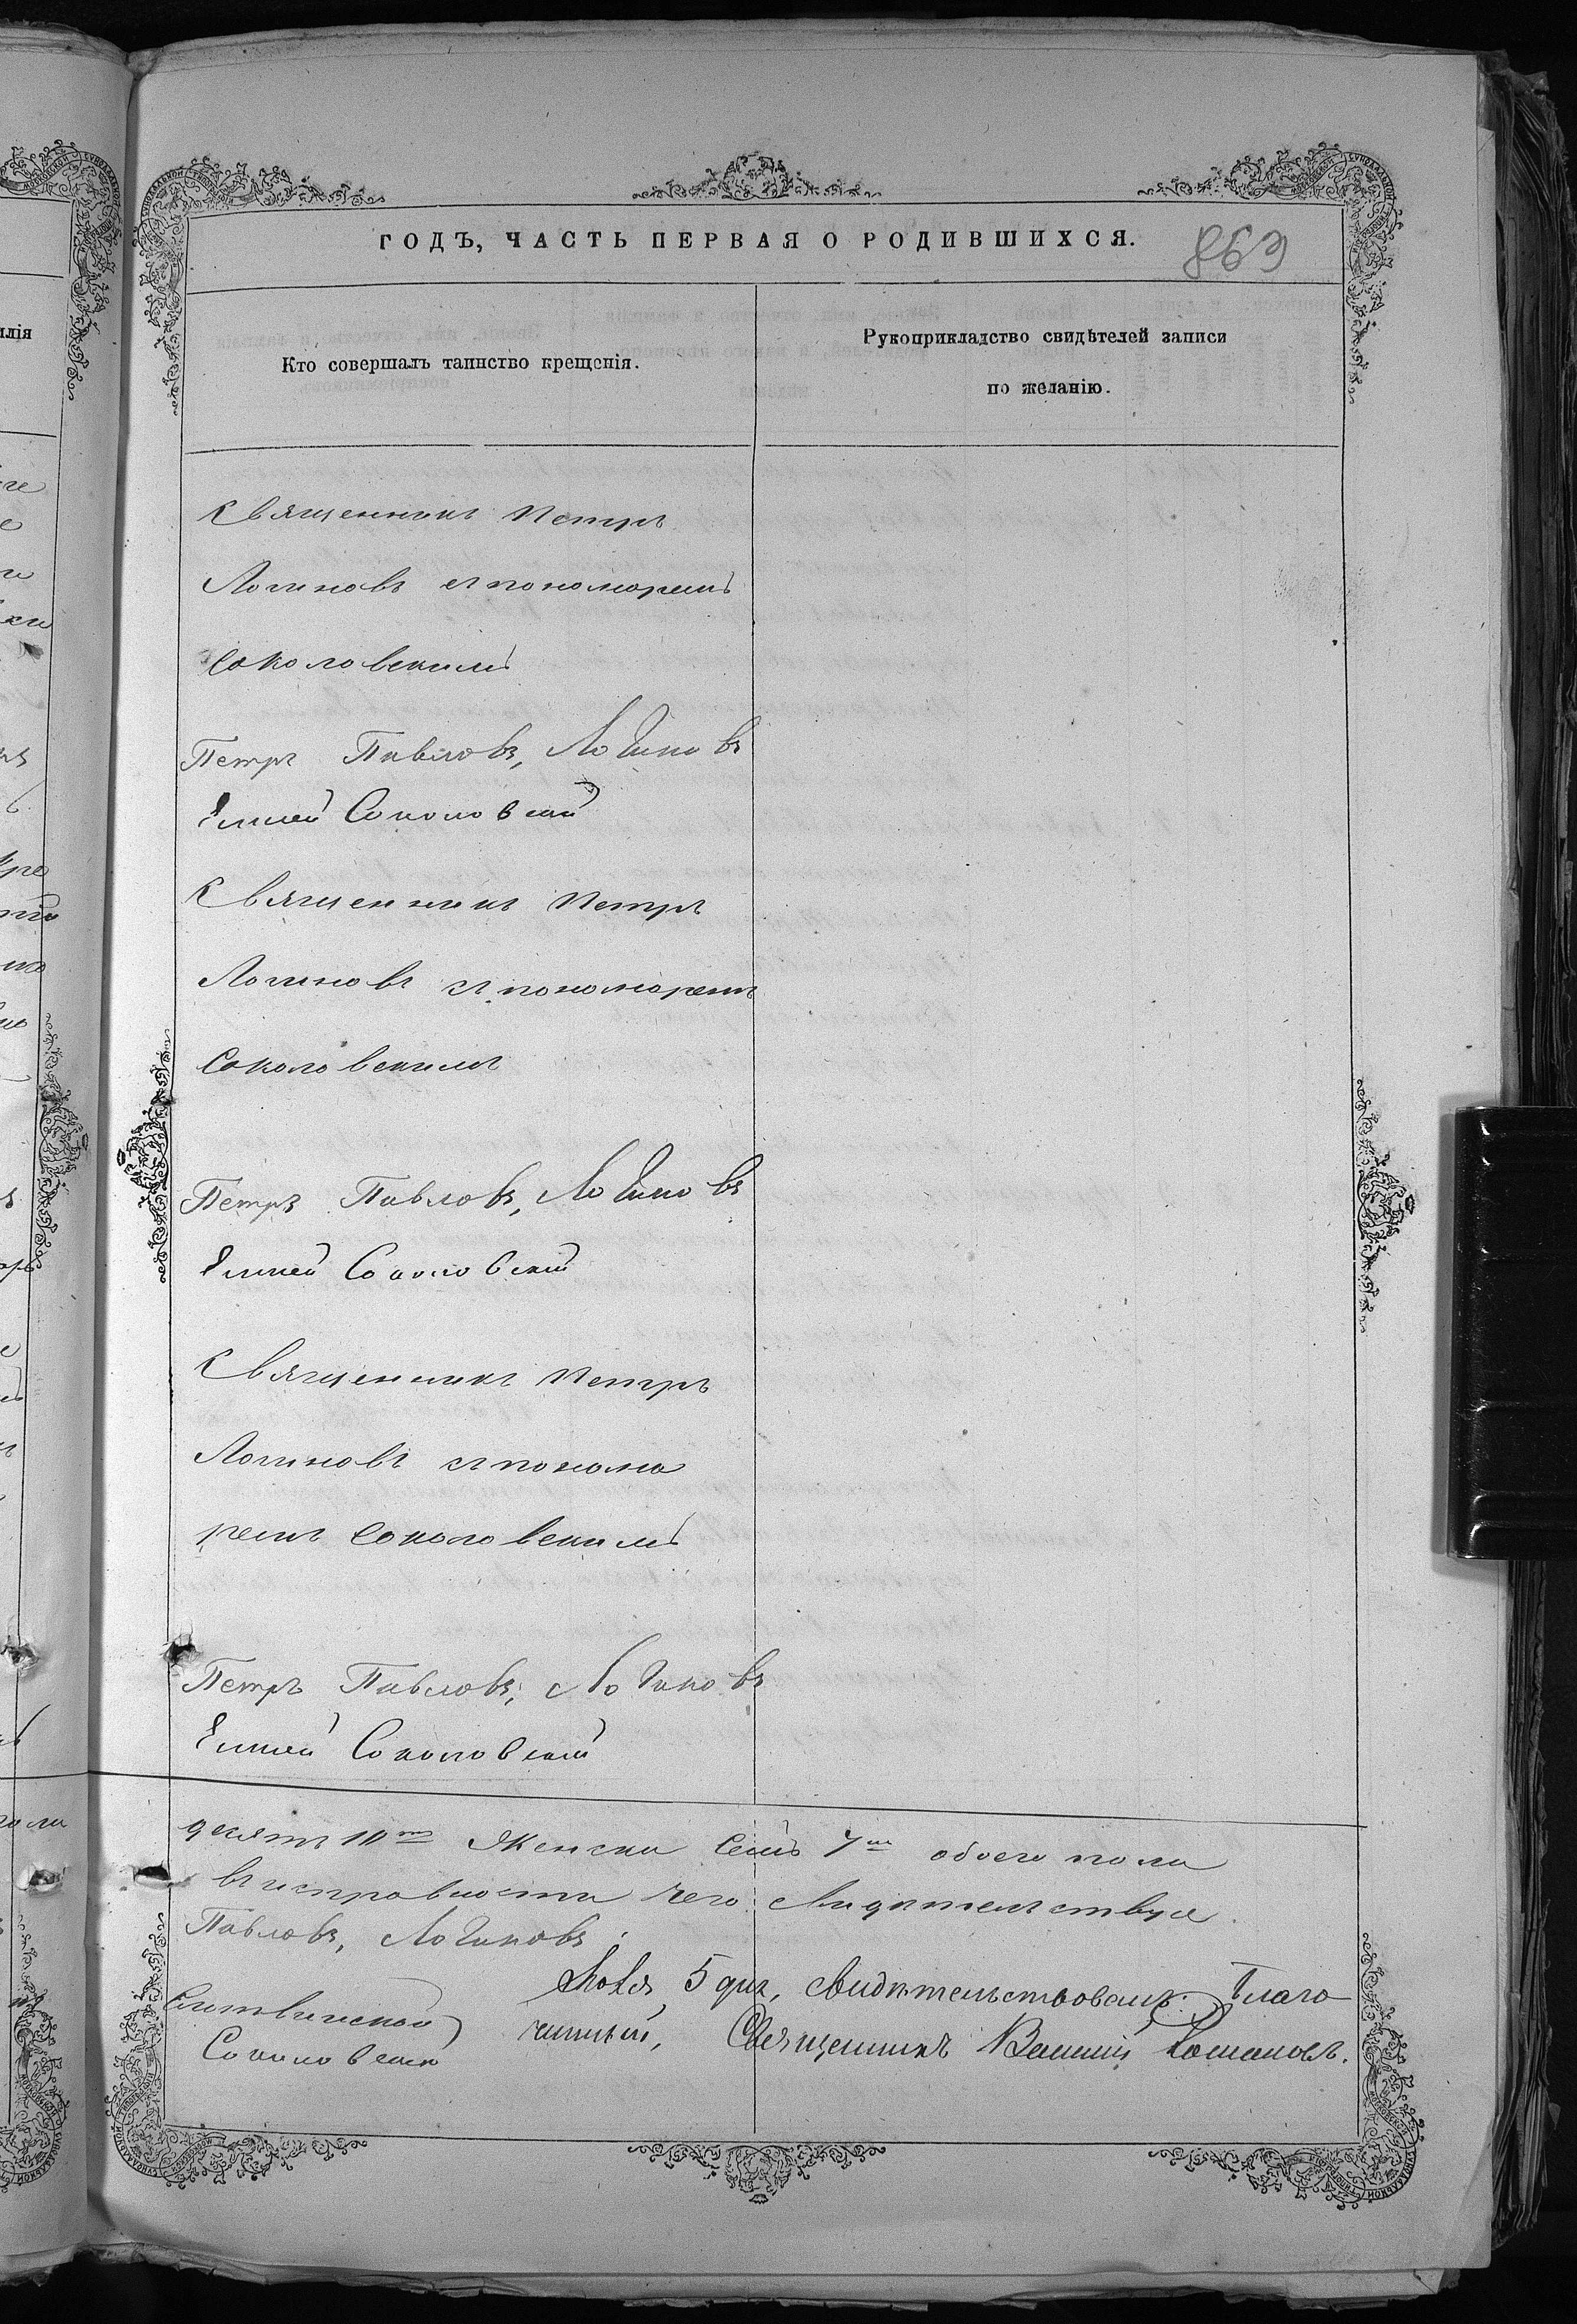 ГОДЪ, ЧАСТЬ ПЕРВАЯ О РОДИВШИХСЯ.
869
Кто совершалъ таинство крещенія.
Рукоприкладство свидѣтелей записи
по желанію.
Священникъ Петръ
Логиновъ съ пономаремъ
Соколовскимъ
Петръ Павловъ, Логиновъ
Соколовскій
Священникъ Петръ
Логиновъ съ пономаремъ
Соколовскимъ
Петръ Павловъ, Логиновъ
Соколовскій
Священникъ Петръ
Логиновъ съ понома
ремъ Соколовскимъ
Петръ Павловъ, Логиновъ
Соколовскій
десять 10ть Женска семь 7мь обоего пола
въ исправности чего свидѣтельствуе
Павловъ, Логиновъ
5 дня, свидѣтельствовалъ: Благо
чинный, Священникъ Романовъ.
Соколовскій